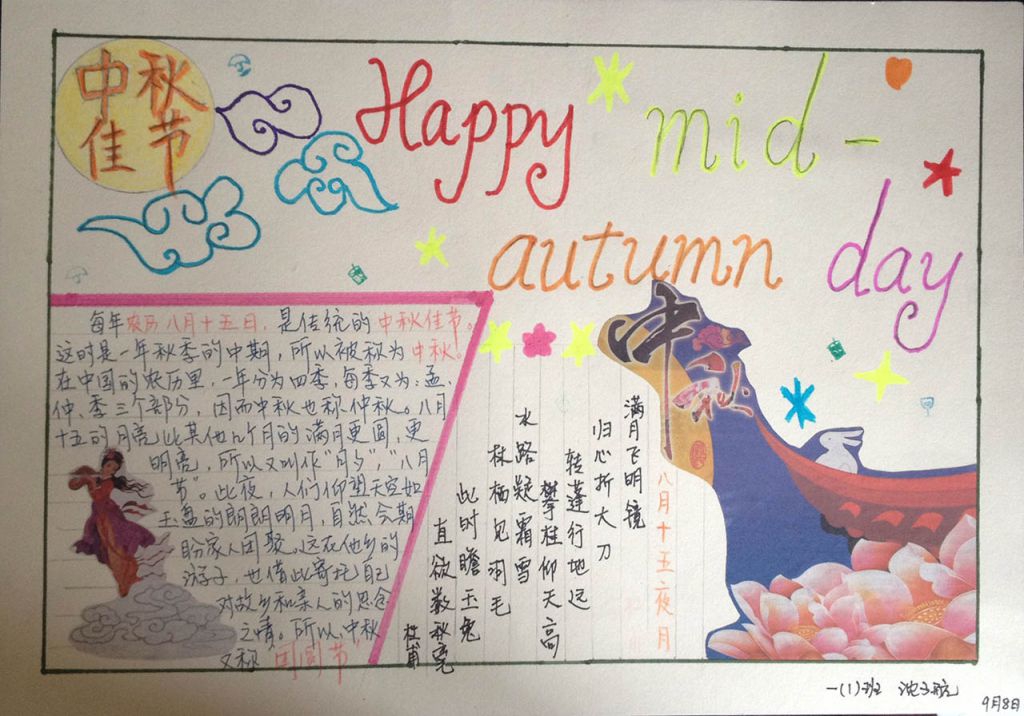 中秋
佳节
Happy mid-
autumn day
每年农历八月十五日，是传统的中秋佳节。
这时是一年秋季的中期，所以被称为中秋。
在中国的农历里，一年分为四季，每季又为：孟、
仲、季三个部分，因而中秋也称仲秋。八月
十五的月亮比其他几个月的满月更圆，更
明亮，所以又叫作“月夕”，“八月
节”。此夜，人们仰望天空如
玉盘的朗朗明月，自然会期
盼家人团聚。远在他乡的
游子，也借此寄托自己
对故乡和亲人的思念
之情。所以，中秋
又称“团圆节”
中秋
八月十五夜月
满月飞明镜
归心折大刀
转蓬行地远
攀桂仰天高
水路疑霜雪
林栖见羽毛
此时瞻玉兔
直欲数秋毫
杜甫
一(1)班 沈子航
9月8日